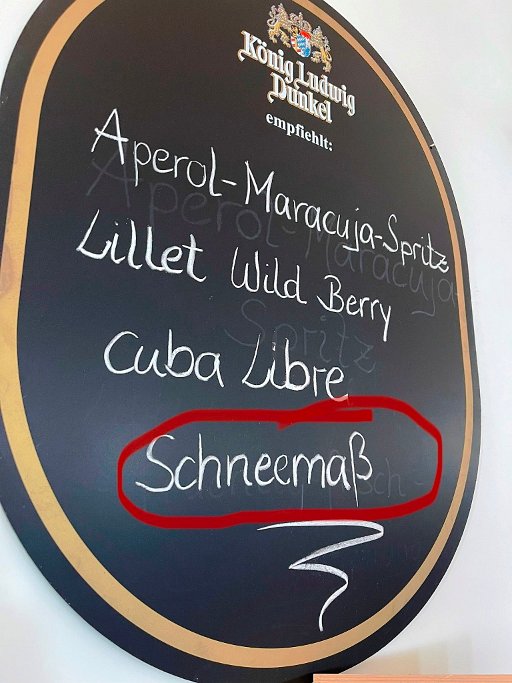 König Ludwig
Dunkel
empfiehlt:
Aperol-Maracuja-Spritz
Lillet Wild Berry
Cuba Libre
Schneemaß